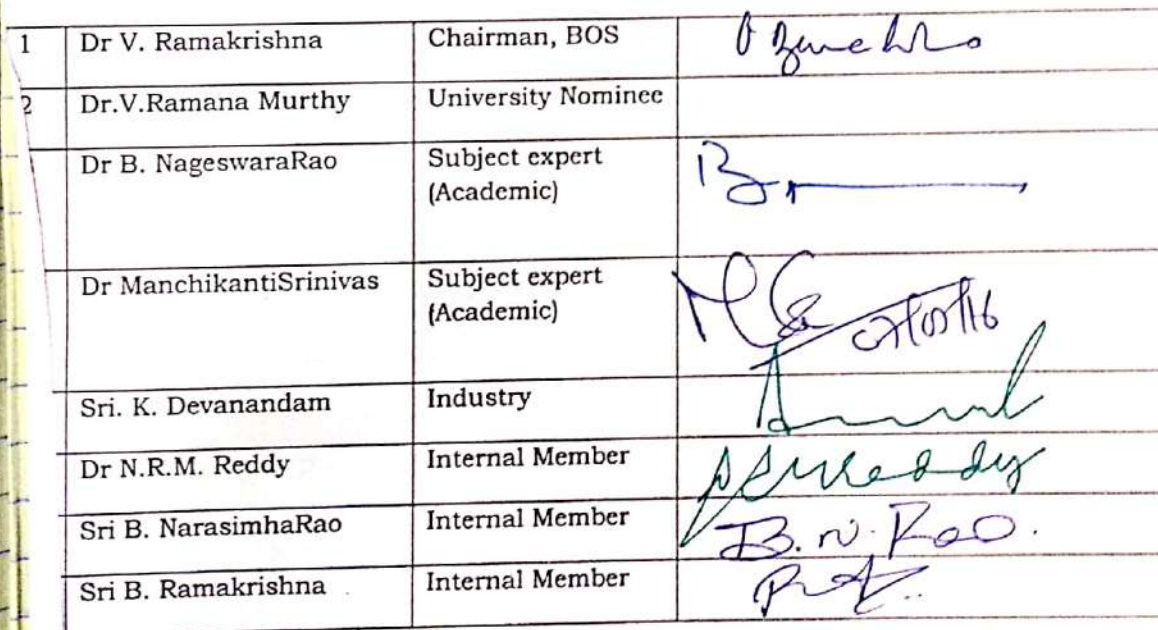 1 Dr V. Ramakrishna Chairman, BOS
2 Dr.V.Ramana Murthy University Nominee
Dr B. NageswaraRao Subject expert
(Academic)
Dr ManchikantiSrinivas Subject expert
(Academic)
Sri. K. Devanandam Industry
Dr N.R.M. Reddy Internal Member
Sri B. NarasimhaRao Internal Member B.N.Rao.
Sri B. Ramakrishna Internal Member